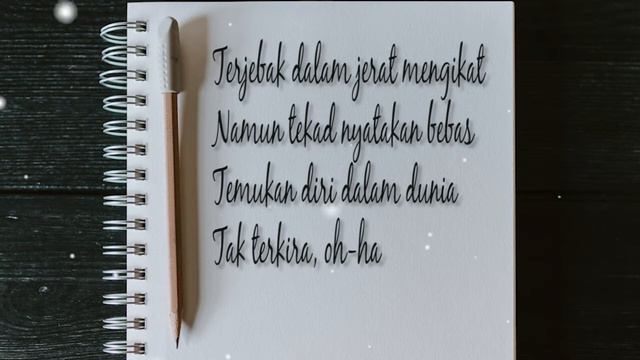 Terjebak dalam jerat mengikat
Namun tekad nyatakan bebas
Temukan diri dalam dunia
Tak terkira, oh-ha